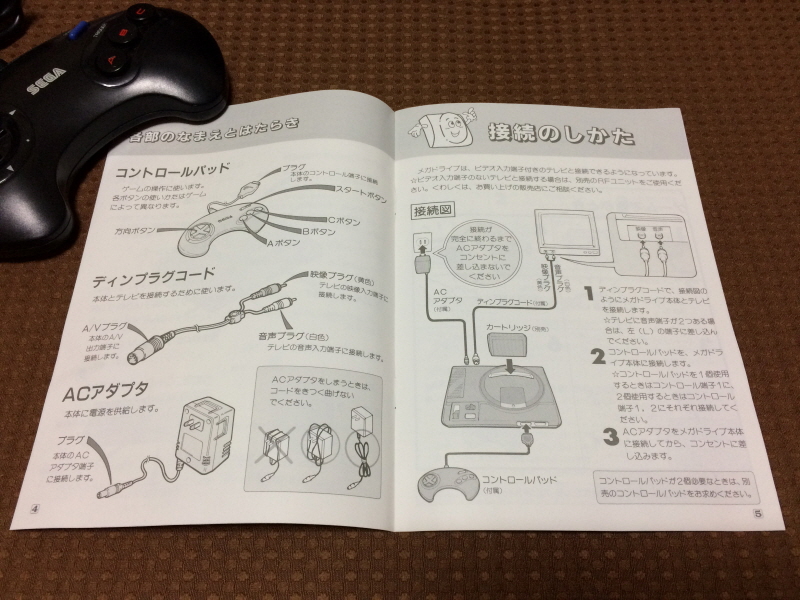 SEGA
A
B
C
各部のなまえとはたらき
コントロールパッド
ゲームの操作に使います。
各ボタンの使いかたはゲーム
によって異なります。
プラグ
本体のコントロール端子に接続
します。
スタートボタン
Cボタン
Bボタン
Aボタン
方向ボタン
ディンプラグコード
本体とテレビを接続するために使います。
映像プラグ(黄色)
テレビの映像入力端子に
接続します。
A/Vプラグ
本体のA/V
出力端子に
接続します。
音声プラグ(白色)
テレビの音声入力端子に接続します。
ACアダプタ
本体に電源を供給します。
プラグ
本体のAC
アダプタ端子
に接続します。
ACアダプタをしまうときは、
コードをきつく曲げない
でください。
4
接続のしかた
メガドライブは、ビデオ入力端子付きのテレビと接続できるようになっています。
☆ビデオ入力端子のないテレビと接続する場合は、別売のRFユニットをご使用くだ
さい。くわしくは、お買い上げの販売店にご相談ください。
接続図
接続が
完全に終わるまで
ACアダプタを
コンセントに
差し込まないで
ください
AC
アダプタ
(付属)
ディンプラグコード(付属)
映像プラグ
(黄色)
音声プラグ
(白色)
映像 音声
カートリッジ(別売)
コントロールパッド
(付属)
1 ディンプラグコードで、接続図の
ようにメガドライブ本体とテレビ
を接続します。
☆テレビに音声端子が2つある場
合は、左(L)の端子に差し込ん
でください。
2 コントロールパッドを、メガドラ
イブ本体に接続します。
☆コントロールパッドを1個使用
するときはコントロール端子1に、
2個使用するときはコントロール
端子1、2にそれぞれ接続してく
ださい。
3 ACアダプタをメガドライブ本体
に接続してから、コンセントに差
し込みます。
コントロールパッドが2個必要なときは、別
売のコントロールパッドをお求めください。
5